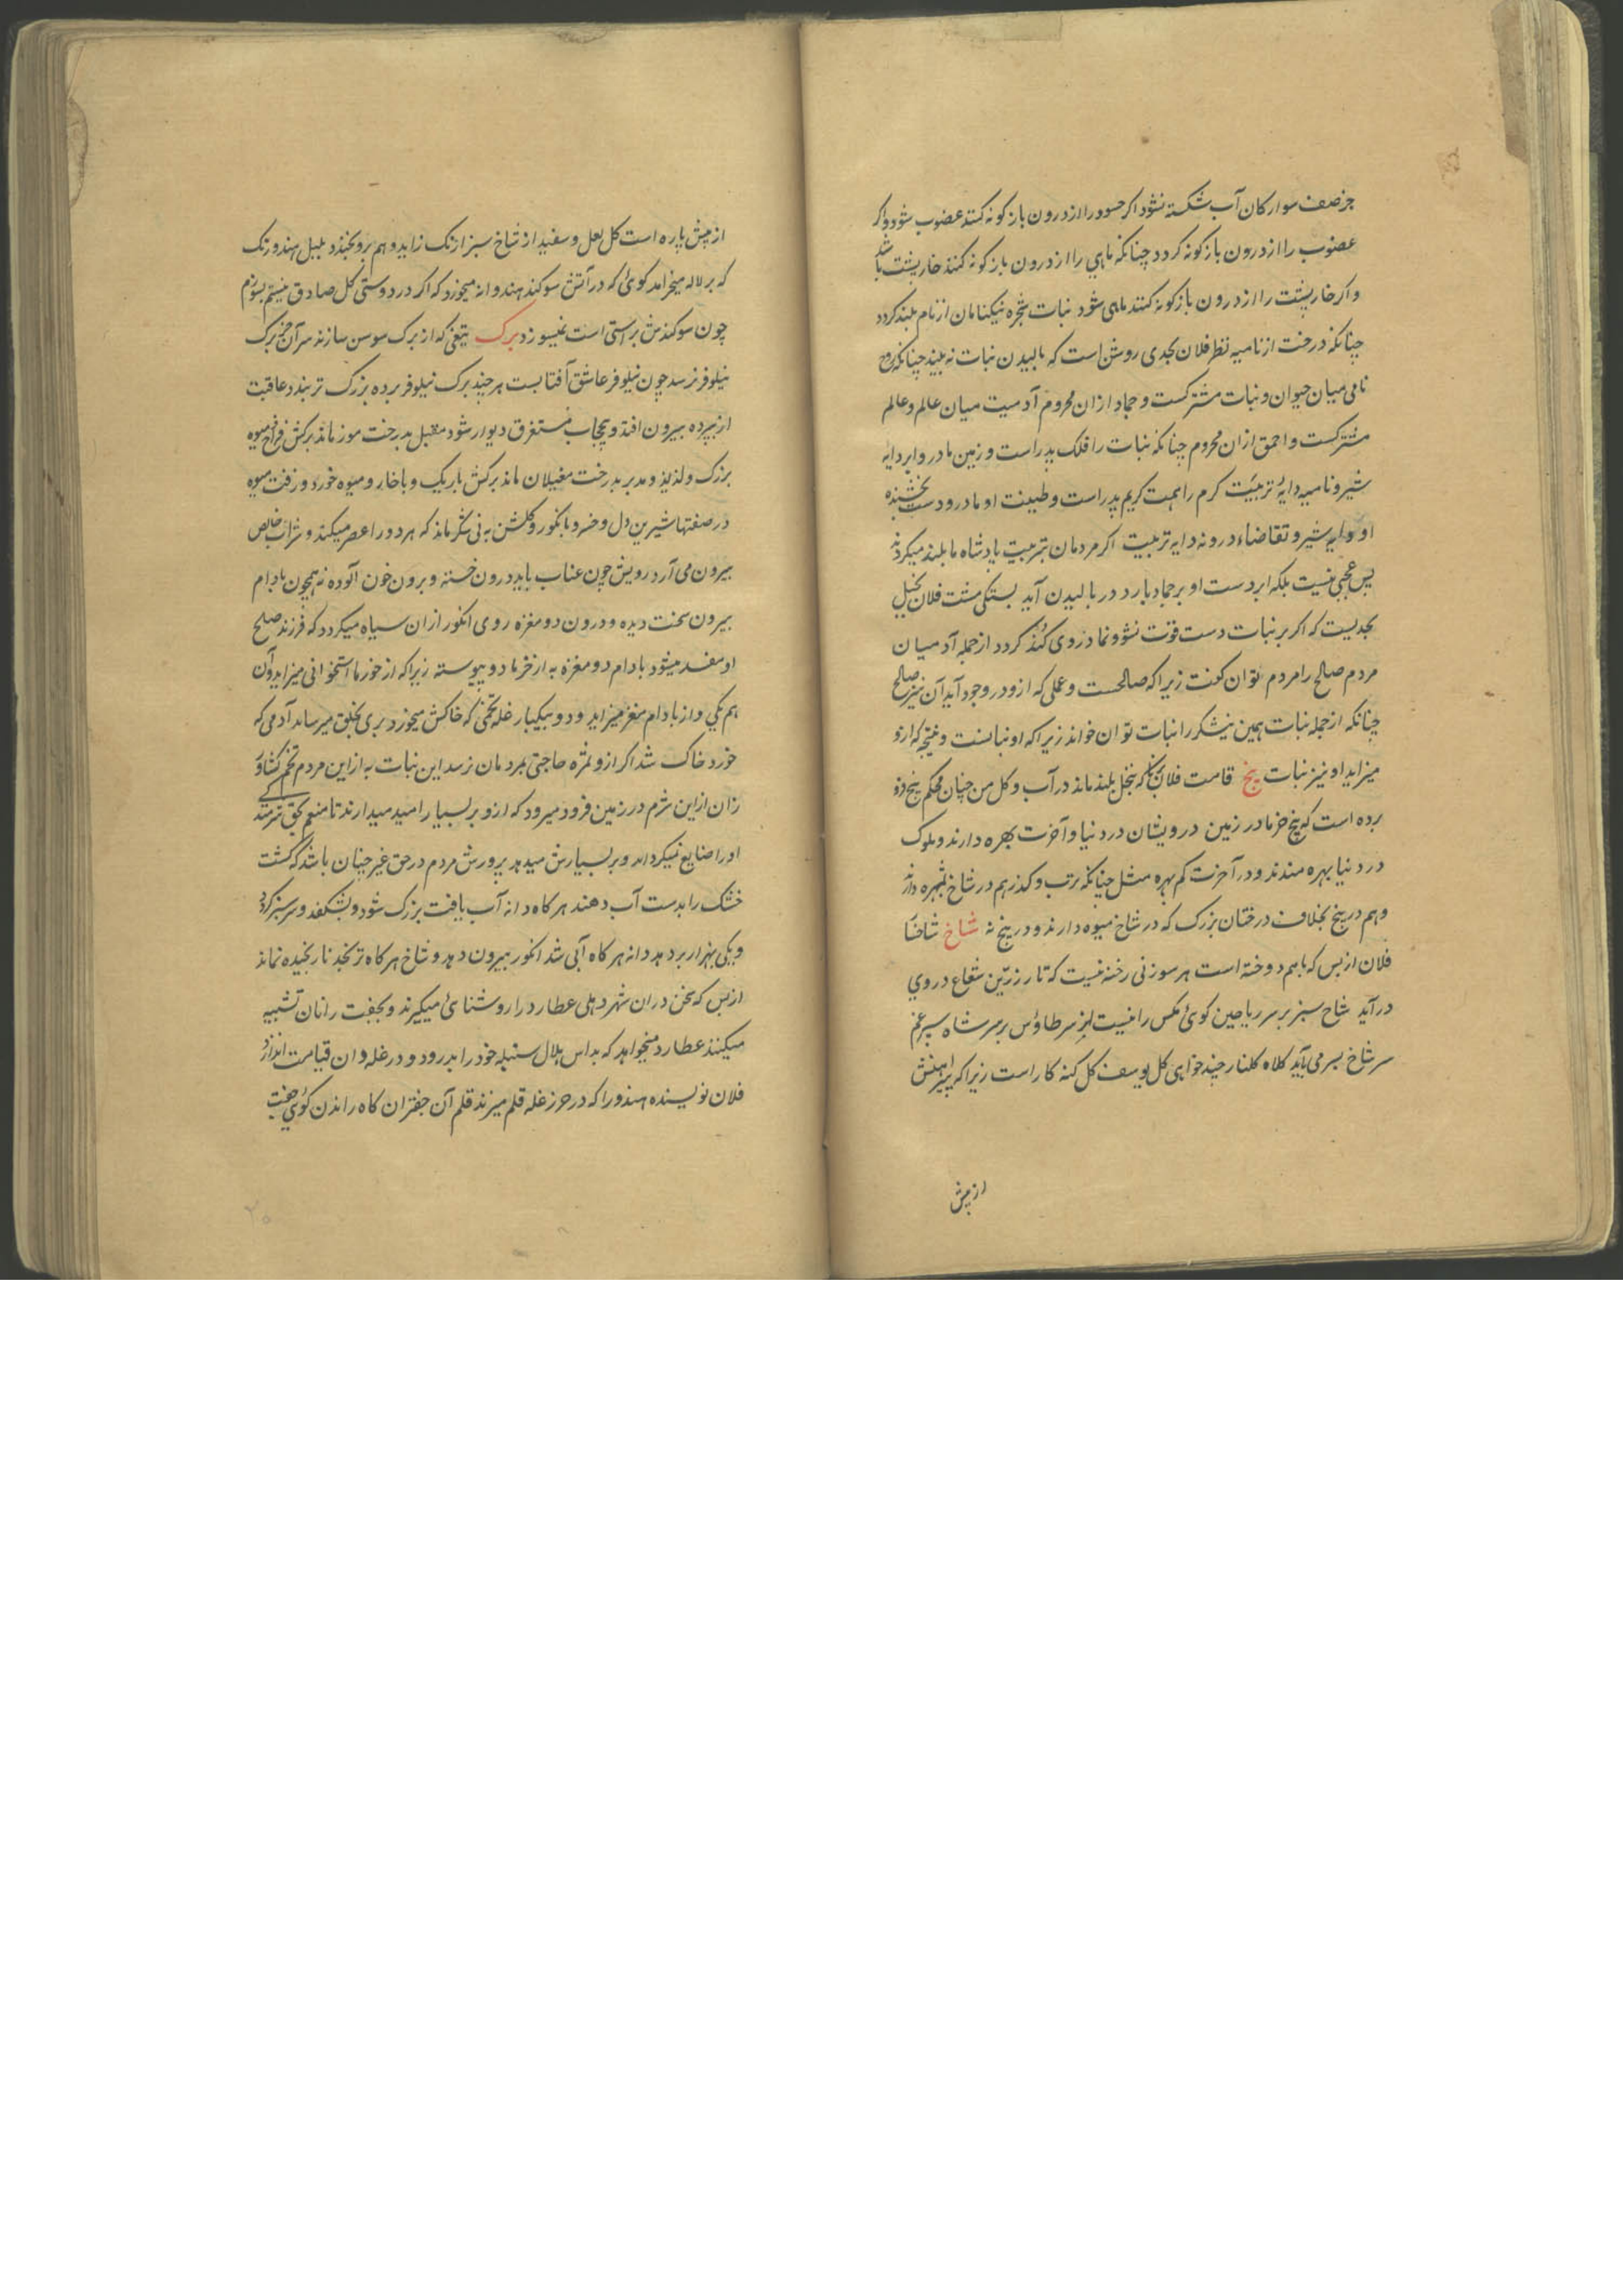 جز صف سوارکان آب شکسته نشود اکر حسود را از درون بازکونه کنند عضوب شود و اکر
عضوب را از درون بازکونه کردد چنانکه ماهی را از درون بازکونه کنند خارپشت باشد
و اکر خارپشت را از درون بازکونه کنند ماهی شود نبات شجره نیکنامان از نام بلند کردد
چنانکه درخت از نامیه نظر فلان بحدی روشن است که بالیدن نبات نه بیند چنانکه روح
نامی میان حیوان و نبات مشترکست و جماد ازان محروم آدمیت میان عالم و عالم
مشترکست و احمق ازان محروم چنانکه نبات را فلک پدر است و زمین مادر و ابر دایه
شیر و نامیه دایهٔ تربیت کرم را همت کریم پدر است و طبیعت او مادر و دست بخشنده
او دایه شیر و تقاضاء درونه دایه تربیت اکر مردمان بتربیت پادشاه ما بلند میکردند
پس عجبی نیست بلکه ابر دست او بر جماد بارد در بالیدن آید بستکی مشت فلان بخیل
بحدیست که اکر بر نبات دست قوت نشو و نما در وی کند کردد از جمله آدمیان
مردم صالح را مردم توان کفت زیرا که صالحست و عملی که ازو در وجود آید آن نیز صالح
چنانکه از جمله نبات همین نیشکر را نبات توان خواند زیرا که او نباتست و نتیجه که ازو
میزاید او نیز نبات بیخ قامت فلان که بنخل بلند ماند در آب و کل من چنان محکم بیخ فرو
برده است که بیخ خرما در زمین درویشان در دنیا و آخرت بهره دارند و ملوک
در دنیا بهره مندند و در آخرت کم بهره مثل چنانکه ترب و کذر هم در شاخ بهره دارند
و هم در بیخ بخلاف درختان بزرک که در شاخ میوه دارند و در بیخ نه شاخ شاخها
فلان از بس که باهم دوخته است هر سوزنی رخنه نیست که تار زرین شعاع در وی
درآید شاخ سبز بر سر ریاحین کوئی مکس رانیست از پر طاؤس بر سر شاه سپرغم
سر شاخ بسر می باید کلاه کلنار چند خواهی کل یوسف کل کنه کار است زیرا که پیراهنش
از پیش
از پیش پاره است کل لعل و سفید از شاخ سبز ارنک زاید و هم برو بخندد بلبل هندو رنک
که بر لاله میخرامد کوئی که در آتش سوکند هندوانه میخورد که اکر در دوستی کل صادق نیستم بسوزم
چون سوکندش براستی است نمیسوزد برک تیغی که از برک سوسن سازند سر آن خنجر برک
نیلوفر نرسد چون نیلوفر عاشق آفتابست هر چند برک نیلوفر پرده بزرک تر بندد عاقبت
از پرده بیرون افتد و بحجاب مستغرق دیوار شود مقبل بدرخت موز ماند برکش فراخ میوه
بزرک و لذیذ و مدبر بدرخت مغیلان ماند برکش باریک و با خار و میوه خورد و زفت میوه
در صفتها شیرین دل و خسرو بانکور و کلشن به نی شکر ماند که هر دو را عصر میکنند و شراب خالص
بیرون می آرد رویش چون عناب باید درون خسته و برون خون آلوده نه همچون بادام
بیرون سخت دیده و درون دو مغزه روی انکور ازان سیاه میکردد که فرزند صلح
او مفسد میشود بادام دو مغزه به از خرما دو پیوسته زیرا که از خرما استخوانی میزاید و آن
هم یکی و از بادام مغز میزاید و دو بیکبار غله تخمی که خاکش میخورد بری بخلق میرساند آدمی که
خورد خاک شد اکر ازو ثمره حاجتی بمردمان نرسد این نبات به از این مردم تخم کشاورز
زان از این شرم در زمین فرود میرود که ازو بر بسیار امید میدارند تا منعم بحق
او را ضایع نمیکرداند و بر بسیارش میدهد پرورش مردم در حق غیر چنان باشد که کشت
خشک را بدست آب دهند هر کاه دانه آب یافت بزرک شود و بشکفد و سرسبز کردد
و یکی بهزار بر دهد دانه هر کاه آبی شد انکور بیرون دهد و شاخ هر کاه ترنجید نارنجیده نماند
از بس که سخن دران شهر دهلی عطارد را روشنائی میکیرند و بجفت رانان تشبیه
میکنند عطارد میخواهد که بداس هلال سنبله خود را بدرود و در غله دان قیامت اندازد
فلان نویسنده هندو را که در حرز غله قلم میزند قلم آن جفتران کاه راندن کوئی جفت